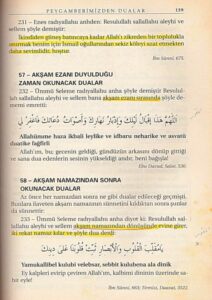 PEYGAMBERİMİZDEN DUALAR 159
231 – Enes radıyallahu anhden: Resulullah sallallahu aleyhi ve
sellem şöyle demiştir:
İkindiden güneş batıncaya kadar Allah'ı zikreden bir toplulukla
oturmak benim için İsmail oğullarından sekiz köleyi azat etmekten
daha sevimlidir, hoştur.
İbn Sünnî, 675.
57 – AKŞAM EZANI DUYULDUĞU
ZAMAN OKUNACAK DUALAR
232 – Ümmü Seleme radıyallahu anha şöyle demiştir: Resulullah
sallallahu aleyhi ve sellem bana akşam ezanı sırasında şöyle de-
memi emretti:
اَللّٰهُمَّ هٰذَا إِقْبَالُ لَيْلِكَ وَإِدْبَارُ نَهَارِكَ وَأَصْوَاتُ دُعَاتِكَ فَاغْفِرْ لِي
Allahümme haza ikbali leylike ve idbaru neharike ve asvatü
duatike fağfirli
Allah'ım, bu; gecenin geldiği, gündüzün arkasını dönüp gittiği ve
sana dua edenlerin sesinin yükseldiği andır, beni bağışla!
Ebu Davud, Salat, 530.
58 – AKŞAM NAMAZINDAN SONRA
OKUNACAK DUALAR
Az önce her namazdan sonra ne gibi dualar edileceği geçti. Bunlara
ilaveten akşam namazının sünnetini kıldıktan sonra şunlar
da sünnettir:
233 – Ümmü Seleme radıyallahu anha diyor ki: Resulullah sallallahu
aleyhi ve sellem akşam namazından dönünce evine girer,
iki rekat namaz kılar ve şöyle dua derdi:
يَا مُقَلِّبَ الْقُلُوبِ وَالْأَبْصَارِ ثَبِّتْ قُلُوبَنَا عَلَى دِينِكَ
Yamukallibel kulubi velebsar, sebbit kulubena ala dinik
Ey kalpleri evirip çeviren Allah'ım, kalbimi dininin üzerinde sa-
bit eyle!
İbn Sünnî, 663; Tirmizi, Daavat, 3522.